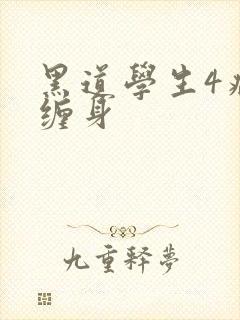 黑道學生4
缠身
九重釋夢